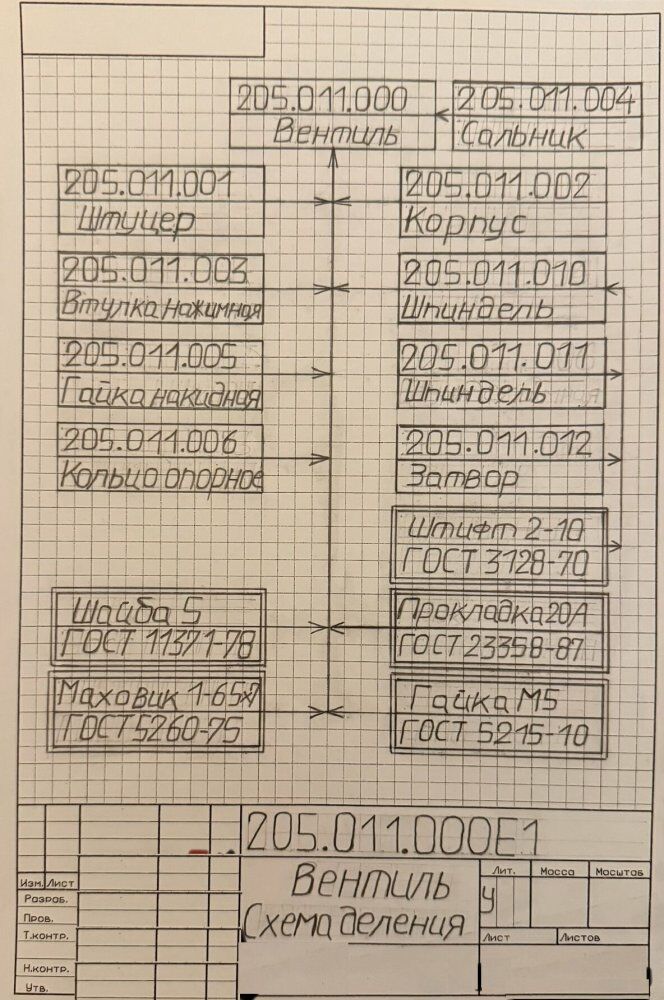 205.011.000
Вентиль
205.011.004
Сальник
205.011.001
Штуцер
205.011.002
Корпус
205.011.003
Втулка нажимная
205.011.010
Шпиндель
205.011.005
Гайка накидная
205.011.011
Шпиндель
205.011.006
Кольцо опорное
205.011.012
Затвор
Штифт 2-10
ГОСТ 3128-70
Шайба 5
ГОСТ 11371-78
Прокладка 20А
ГОСТ 23358-87
Маховик 1-65х7
ГОСТ 5260-75
Гайка М5
ГОСТ 5215-10
205.011.000Е1
Вентиль
Схема деления
Изм. Лист
Разраб.
Пров.
Т.контр.
Н.контр.
Утв.
Лит. Масса Масштаб
У
Лист Листов